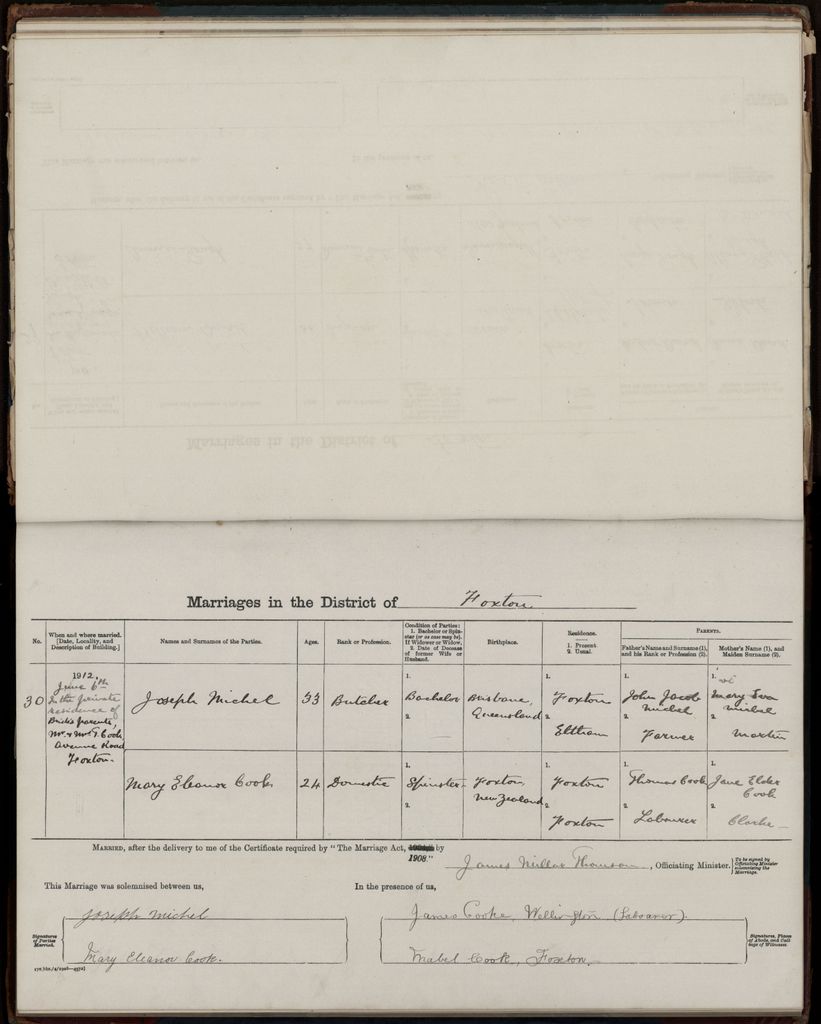 Marriages in the District of Foxton
No.
When and where married.
[Date, Locality, and
Description of Building.]
Names and Surnames of the Parties.
Ages.
Rank or Profession.
Condition of Parties:
1. Bachelor or Spin-
ster (or as case may be).
If Widower or Widow,
2. Date of Decease
of former Wife or
Husband.
Birthplace.
Residence.
1. Present.
2. Usual.
PARENTS.
Father's Name and Surname (1),
and his Rank or Profession (2).
Mother's Name (1), and
Maiden Surname (2).
30
1912.
June 6th
In the private
residence of
Bride's parents,
Mr & Mrs T. Cook,
Avenue Road
Foxton.
Joseph Michel
33
Butcher
1.
Bachelor
2.
Brisbane,
Queensland
1.
Foxton
2.
Eltham
1.
John Jacob
Michel
2.
Farmer
1.
Mary Eva
Michel
2.
Martin
Mary Eleanor Cook
24
Domestic
1.
Spinster
2.
Foxton,
New Zealand
1.
Foxton
2.
Foxton
1.
Thomas Cook
2.
Labourer
1.
Jane Elder
Cook
2.
Clarke
MARRIED, after the delivery to me of the Certificate required by "The Marriage Act, by
1908."
James Millar Thomson, Officiating Minister.
[To be signed by
Officiating Minister
solemnizing the
Marriage.
This Marriage was solemnised between us,
In the presence of us,
Signatures
of Parties
Married.
Joseph Michel
Mary Eleanor Cook.
James Cooke, Wellington (Labourer).
Mabel Cook, Foxton.
Signatures, Places
of Abode, and Call-
ings of Witnesses.